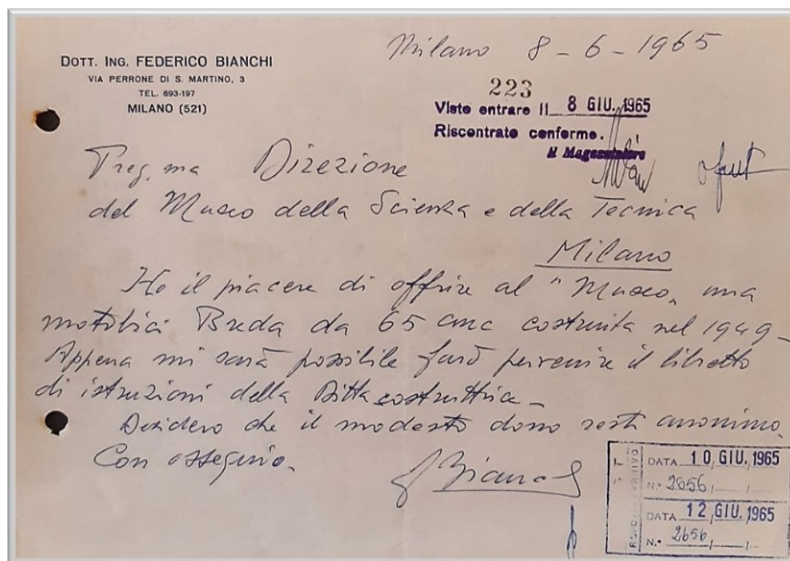 DOTT. ING. FEDERICO BIANCHI
VIA PERRONE DI S. MARTINO, 3
TEL. 693-197
MILANO (521)
Milano 8-6-1965
223
Viste entrare il 8 GIU. 1965
Riscontrate conforme.
Il Magazziniere
Preg.ma Direzione
del Museo della Scienza e della Tecnica
Milano
Ho il piacere di offrire al "Museo" una
motobici Breda da 65 cmc costruita nel 1949-
Appena mi sarà possibile farò pervenire il libretto
di istruzioni della Ditta costruttrice-
Desidero che il modesto dono resti anonimo.
Con ossequio.
F Bianchi
DATA 10 GIU. 1965
N.° 2656
DATA 12 GIU. 1965
N.° 2656